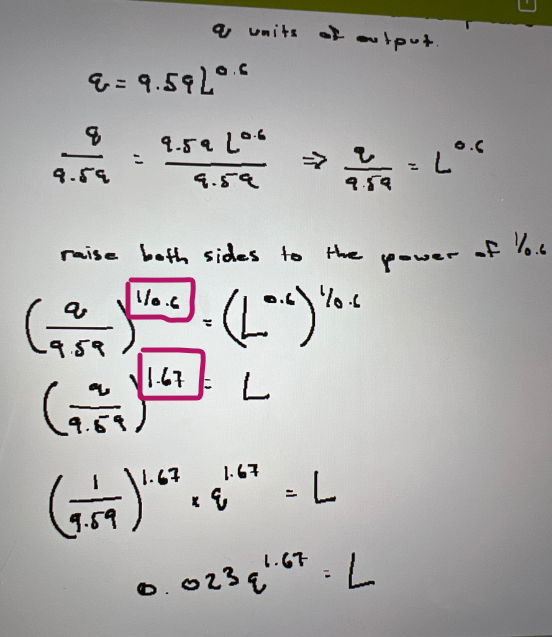 q units of output.
q = 9.59L^0.6
q/9.59 = 9.59 L^0.6/9.59 ⇒ q/9.59 = L^0.6
raise both sides to the power of 1/0.6
(q/9.59)^1/0.6 = (L^0.6)^1/0.6
(q/9.59)^1.67 = L
(1/9.59)^1.67 × q^1.67 = L
0.023q^1.67 = L